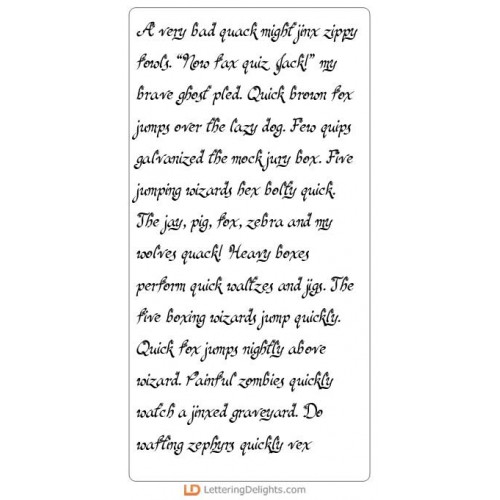 A very bad quack might jinx zippy
fowls. “Now fax quiz Jack!” my
brave ghost pled. Quick brown fox
jumps over the lazy dog. Few quips
galvanized the mock jury box. Five
jumping wizards hex bolty quick.
The jay, pig, fox, zebra and my
wolves quack! Heavy boxes
perform quick waltzes and jigs. The
five boxing wizards jump quickly.
Quick fox jumps nightly above
wizard. Painful zombies quickly
watch a jinxed graveyard. Do
wafting zephyrs quickly vex
LD LetteringDelights.com